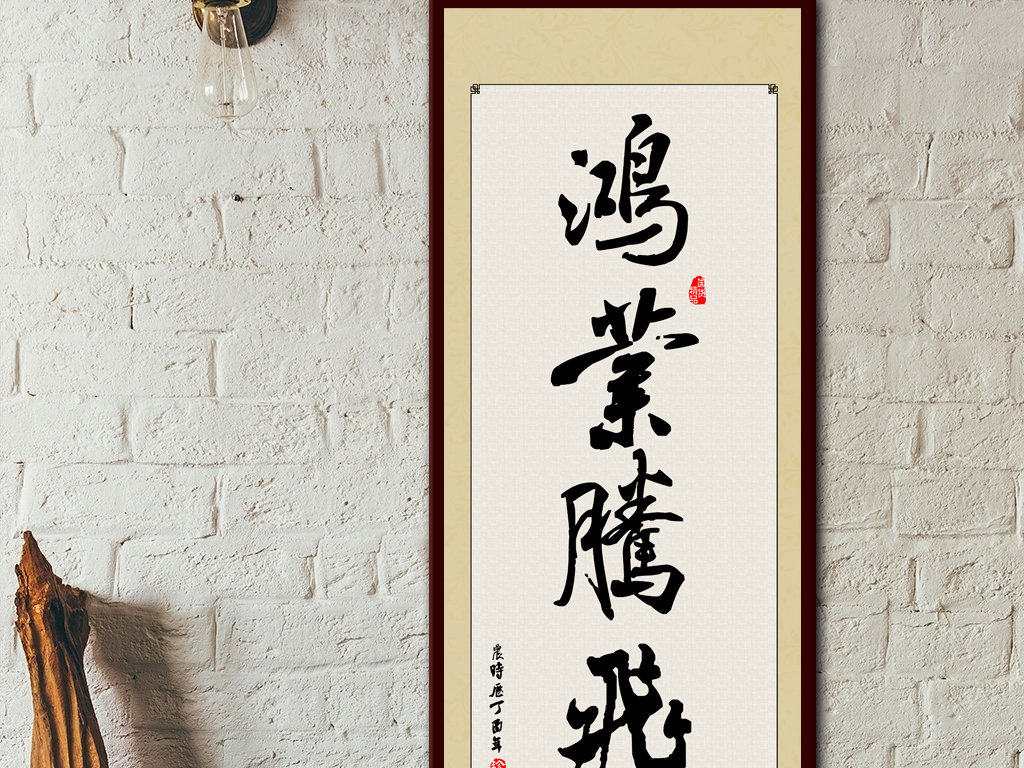 鴻業騰飛
農時歷丁酉年